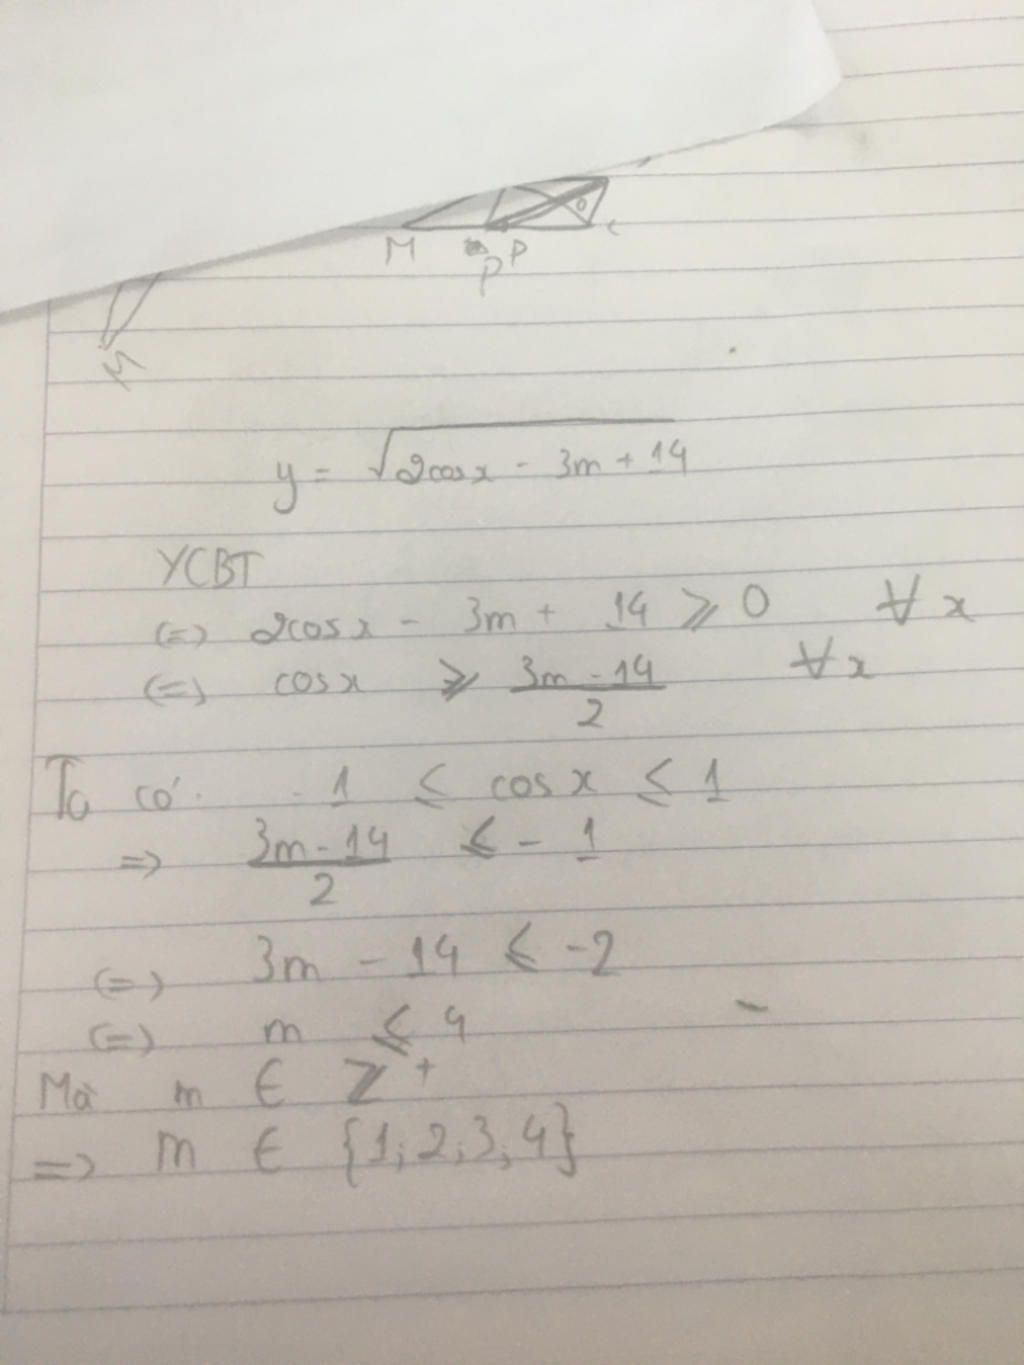 M P P
M
y = √2cosx - 3m + 14
YCBT
(=) 2cosx - 3m + 14 ⩾ 0 ∀x
(=) cosx ⩾ 3m - 14 / 2 ∀x
Ta có. -1 ≤ cosx ≤ 1
=> 3m - 14 / 2 ⩽ -1
(=) 3m - 14 ⩽ -2
(=) m ⩽ 4
Mà m ∈ Z+
=> m ∈ {1;2;3;4}